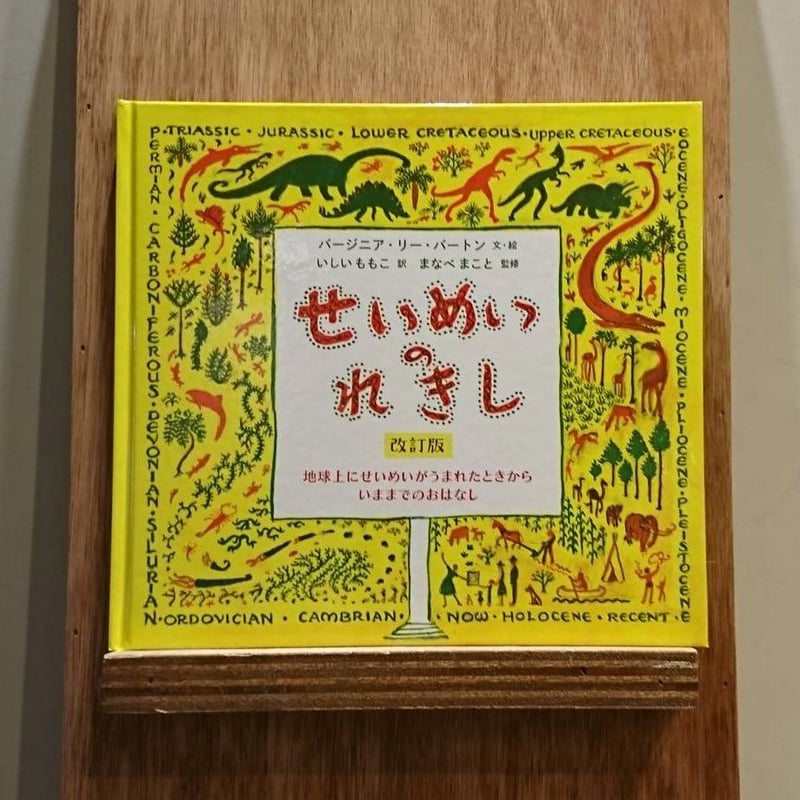 P·TRIASSIC · JURASSIC · LOWER CRETACEOUS · UPPER CRETACEOUS · E
PERMIAN · CARBONIFEROUS · DEVONIAN · SILURIAN
EOCENE · OLIGOCENE · MIOCENE · PLIOCENE · PLEISTOCENE
バージニア・リー・バートン 文・絵
いしい ももこ 訳 まなべ まこと 監修
せいめい
の
れきし
改訂版
地球上にせいめいがうまれたときから
いままでのおはなし
ORDOVICIAN · CAMBRIAN · NOW · HOLOCENE · RECENT